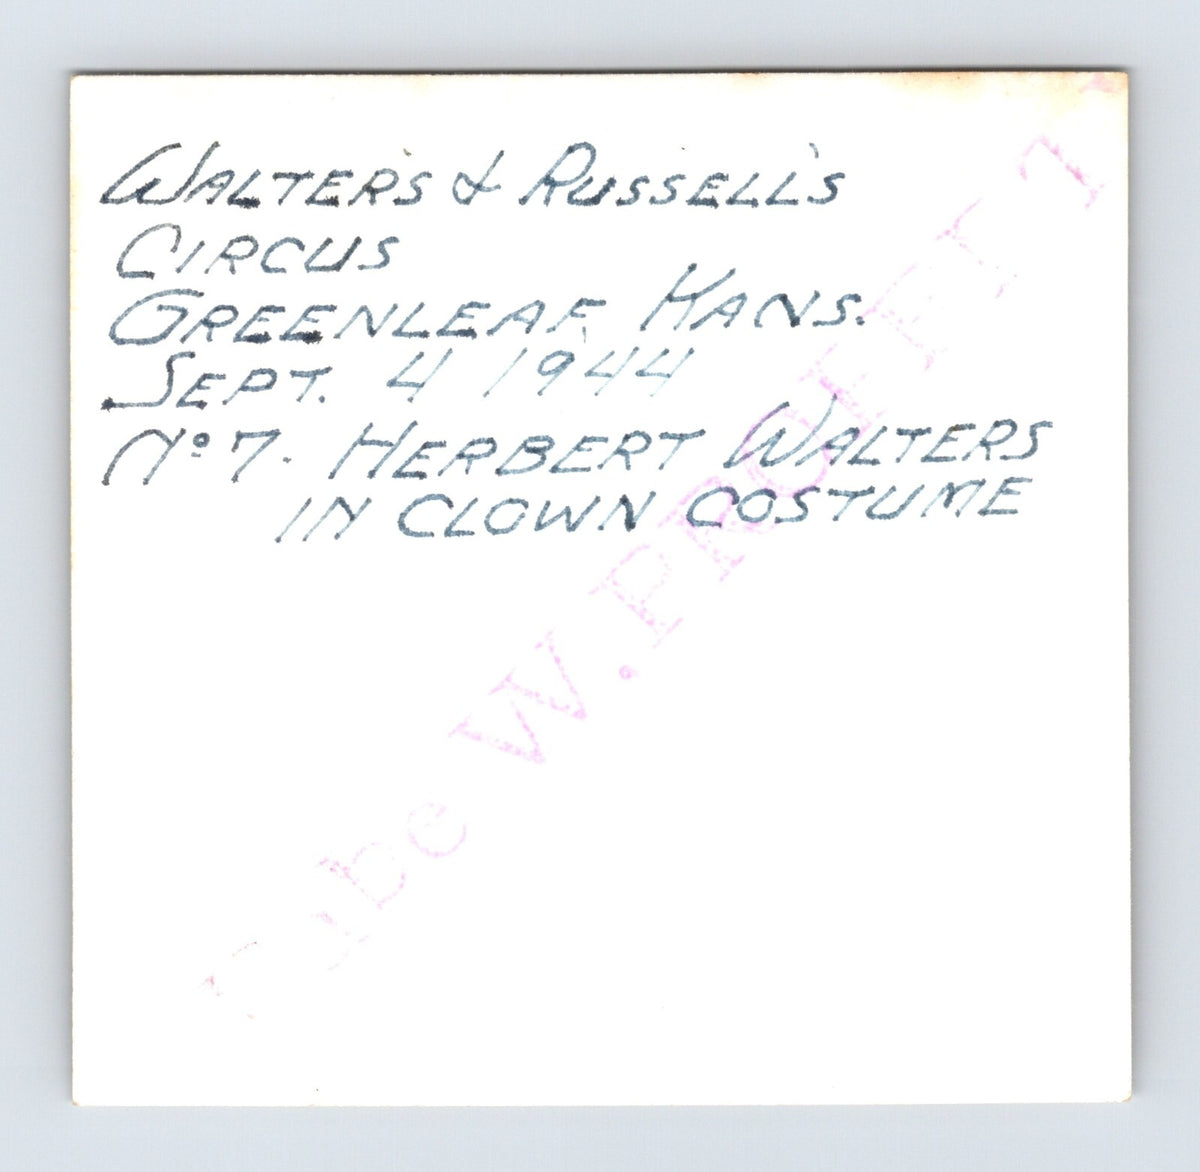 WALTER'S & RUSSELL'S
CIRCUS
GREENLEAF, KANS.
SEPT. 4 1944
Nº 7. HERBERT WALTERS
IN CLOWN COSTUME
W.